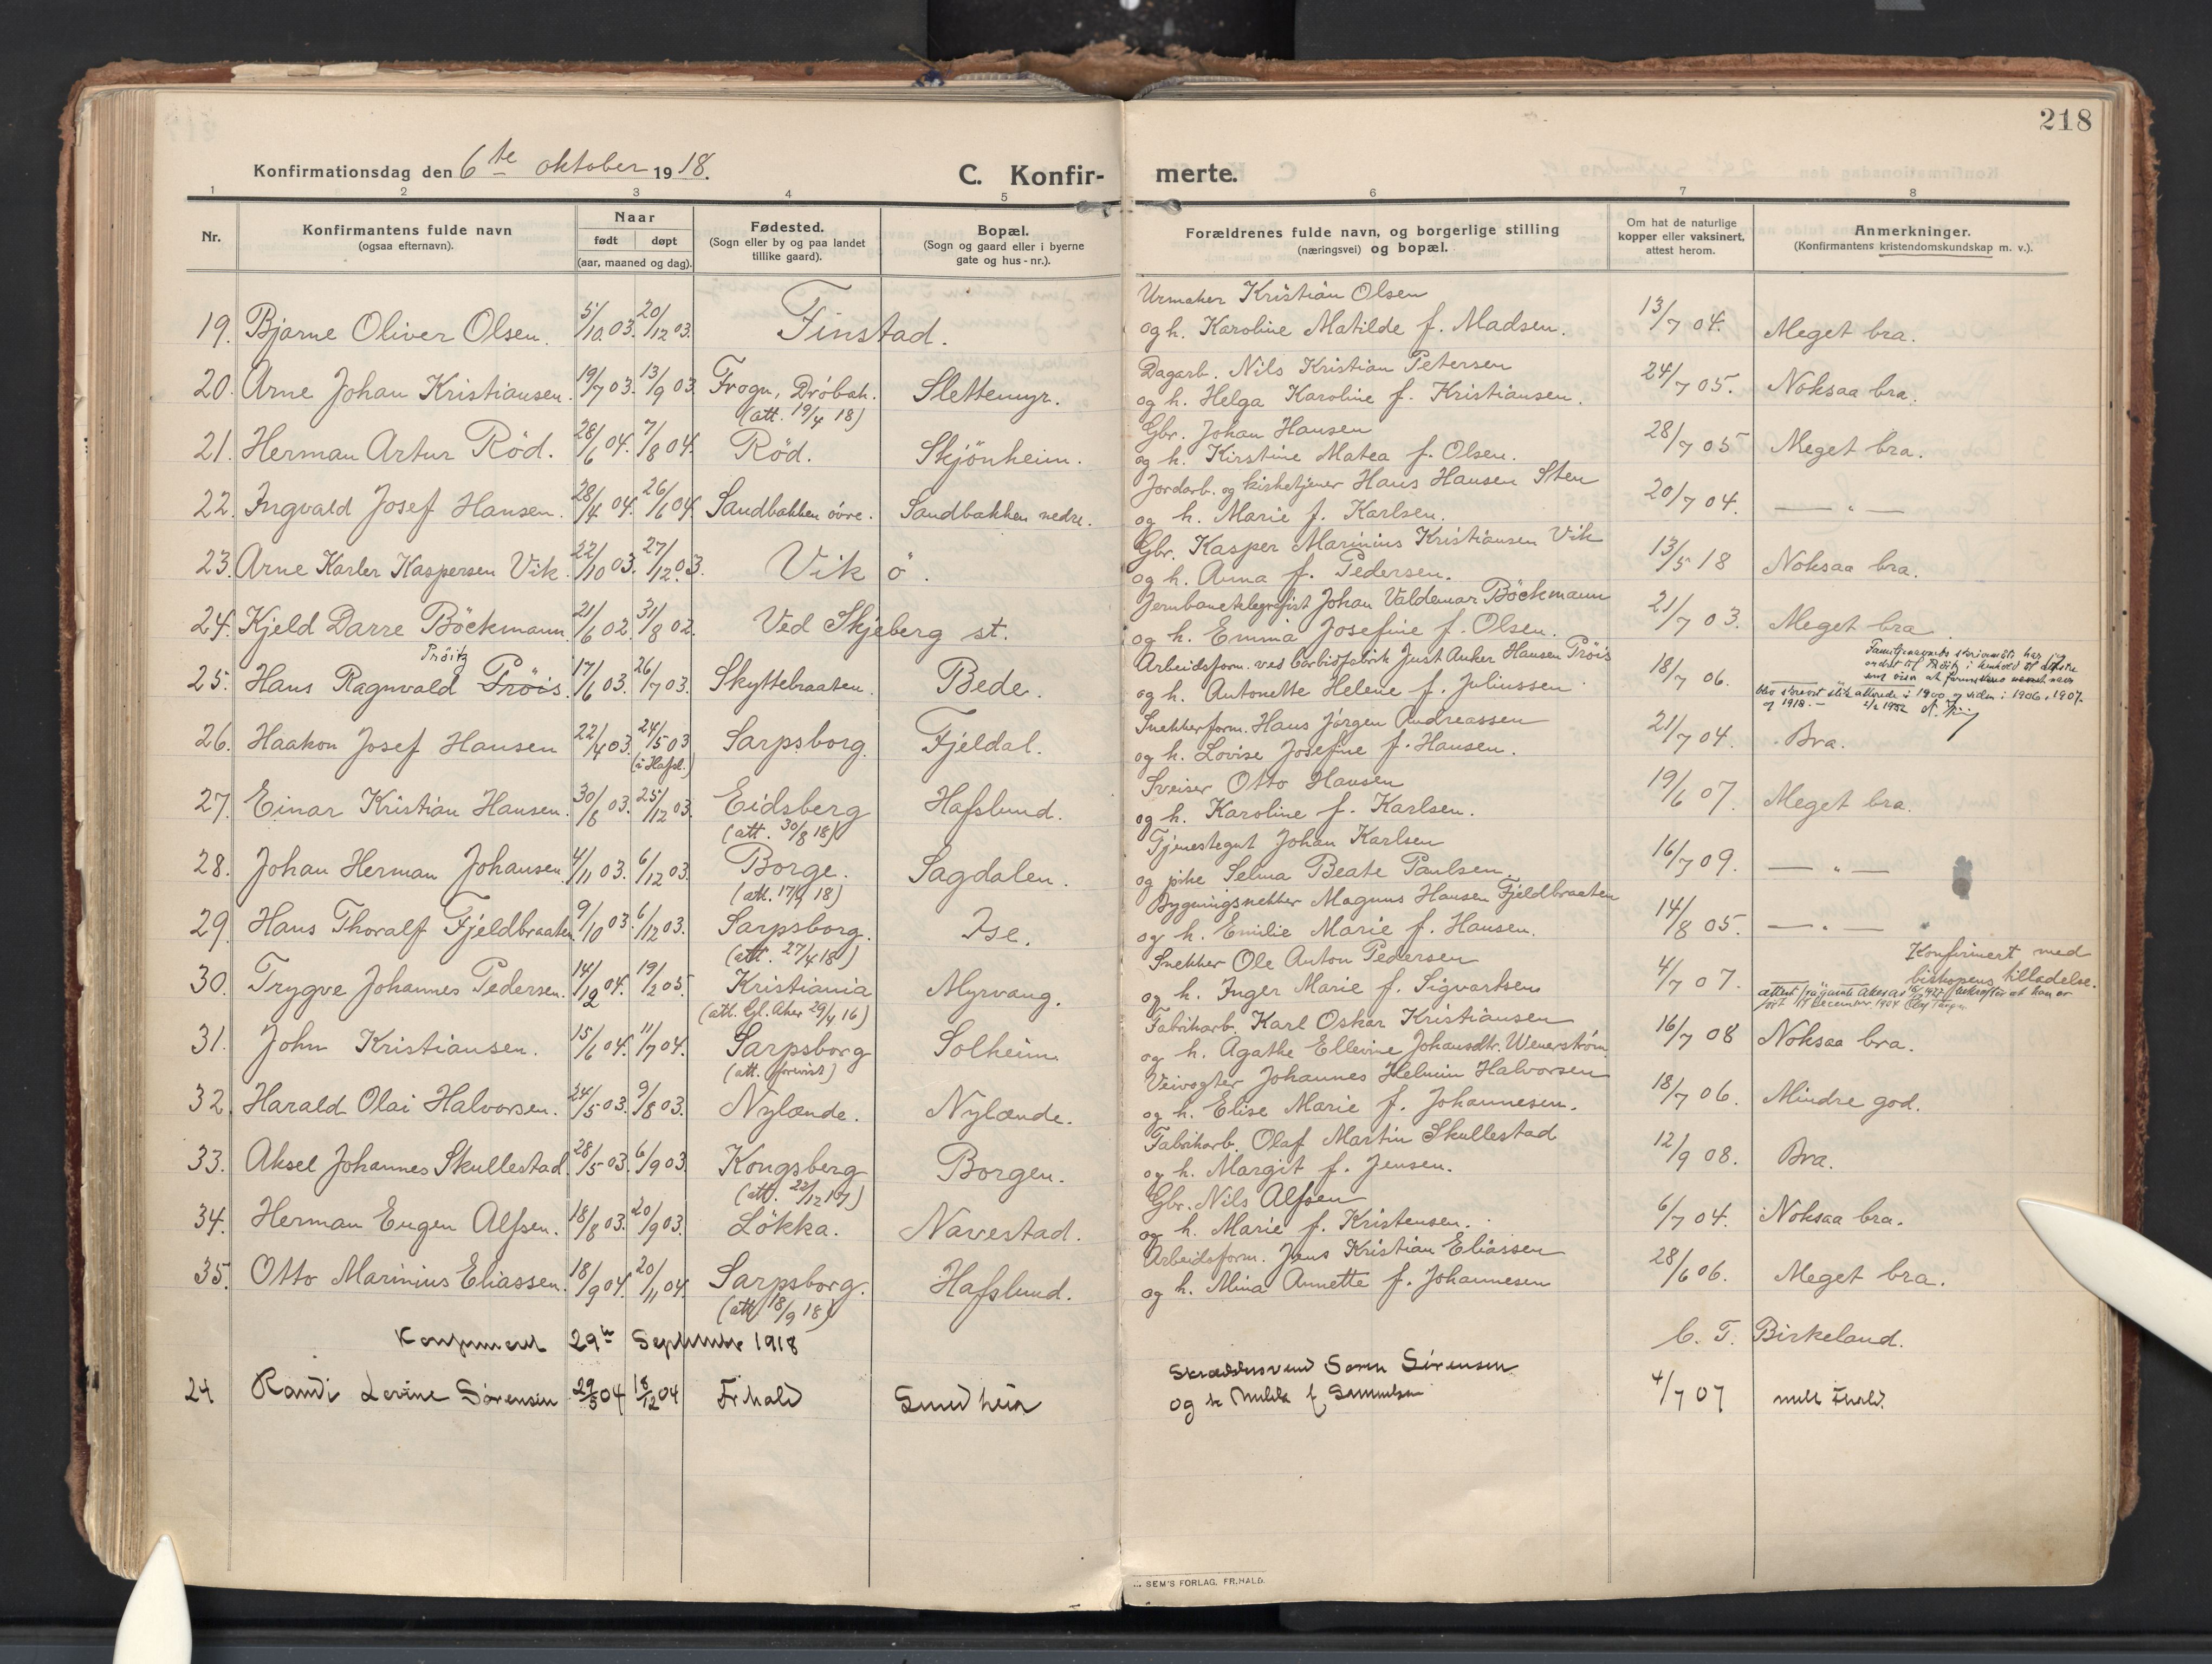 218
Konfirmationsdag den 6te oktober 1918.
C. Konfir-
merte.
1 2 3 4 5 6 7 8
Nr.
Konfirmantens fulde navn
(ogsaa efternavn).
Naar
født døpt
(aar, maaned og dag).
Fødested.
(Sogn eller by og paa landet
tillike gaard).
Bopæl.
(Sogn og gaard eller i byerne
gate og hus-nr.).
Forældrenes fulde navn, og borgerlige stilling
(næringsvei) og bopæl.
Om hat de naturlige
kopper eller vaksinert,
attest herom.
Anmerkninger.
(Konfirmantens kristendomskundskap m. v.).
Urmaker Kristian Olsen
19. Bjarne Oliver Olsen. 5/10 03. 20/12 03. Finstad. og h. Karoline Matilde f. Madsen. 13/7 04. Meget bra.
Dagarb. Nils Kristian Petersen
20. Arne Johan Kristiansen. 19/7 03. 13/9 03. Frogn, Dröbak. Slettemyr. og h. Helga Karoline f. Kristiansen. 24/7 05. Noksaa bra.
(att. 19/4 18)
Gbr. Johan Hansen
21. Herman Artur Röd. 28/6 04. 7/8 04. Röd. Skjönheim. og h. Kirstine Matea f. Olsen. 28/7 05 Meget bra.
Jordarb. og kirketjener Hans Hansen Sten
22. Ingvald Josef Hansen. 28/4 04. 26/6 04. Sandbakken övre. Sandbakken nedre. og h. Marie f. Karlsen. 20/7 04. — " —
Gbr. Kasper Marinius Kristiansen Vik
23. Arne Karler Kaspersen Vik. 22/10 03. 27/12 03. Vik ö. og h. Anna f. Pedersen. 13/5 18 Noksaa bra.
Jernbanetelegrafist Johan Valdemar Böckmann
24. Kjeld Darre Böckmann. 21/6 02. 31/8 02. Ved Skjeberg st. og h. Emma Josefine f. Olsen. 21/7 03. Meget bra.
Pröitz
Arbeidsform. ved Carbidfabrik Just Anker Hansen Pröis
25. Hans Ragnvald Pröis. 17/6 03. 26/7 03. Skyttebraaten. Bede. og h. Antonette Helene f. Juliussen 18/7 06.
Familienavnets skrivemåte har jeg
endret til Pröitz i henhold til
som viser at
blev skrevet slik allerede i 1900 og siden i 1906, 1907
og 1918.—
Snekkerform. Hans Jörgen Andreassen
26. Haakon Josef Hansen 22/4 03. 24/5 03 Sarpsborg. Fjeldal. og h. Lovise Josefine f. Hansen. 21/7 04. Bra.
(i Hafsl.)
Sveiser Otto Hansen
27. Einar Kristian Hansen. 30/8 03. 25/12 03. Eidsberg Hafslund. og h. Karoline f. Karlsen. 19/6 07. Meget bra.
(att. 30/8 18)
Tjenestegut Johan Karlsen
28. Johan Herman Johansen 4/11 03. 6/12 03. Borge. Sagdalen. og pike Selma Beate Paulsen. 16/7 09. — " —
(att. 17/4 18)
Bygningsnekker Magnus Hansen Fjeldbraaten
29. Hans Thoralf Fjeldbraaten 9/10 03. 6/12 03. Sarpsborg. Ise. og h. Emilie Marie f. Hansen. 14/8 05. — " —
(att. 27/4 18)
Snekker Ole Anton Pedersen
30. Trygve Johannes Pedersen. 14/12 04. 19/2 05. Kristiania Myrvang. og h. Inger Marie f. Sigvartsen 4/7 07.
(att. Gl. Aker 29/4 16)
Konfirmert med
biskopens tilladelse.
attest fra gamle Aker bekrefter at han er
født 14 december 1904
Fabrikarb. Karl Oskar Kristiansen
31. John Kristiansen. 15/6 04. 11/7 04. Sarpsborg Solheim. og h. Agathe Ellevine Johansdtr. Wenerström. 16/7 08 Noksaa bra.
(att. forevist)
Veivogter Johannes Helmin Halvorsen
32. Harald Olai Halvorsen. 24/5 03. 9/8 03. Nylænde. Nylænde. og h. Elise Marie f. Johannesen. 18/7 06. Mindre god.
Fabrikarb. Olaf Martin Skullestad
33. Aksel Johannes Skullestad. 28/5 03. 6/9 03. Kongsberg Borgen. og h. Margit f. Jensen. 12/9 08. Bra.
(att. 22/12 17)
Gbr. Nils Alfsen
34. Herman Eugen Alfsen. 18/8 03. 20/9 03. Lökka. Navestad. og h. Marie f. Kristensen. 6/7 04. Noksaa bra.
Arbeidsform. Jens Kristian Eliassen
35. Otto Marinius Eliassen. 18/9 04. 20/11 04. Sarpsborg. Hafslund. og h. Mina Annette f. Johannesen 28/6 06. Meget bra.
(att. 18/9 18)
C. T. Birkeland.
Konfirmeret 29de September 1918
Skræddersvend Søren Sörensen
24 Randi Lovine Sörensen 29/5 04 18/12 04 Fr.hald Sundheim og h f Samuelsen 4/7 07
SEM'S FORLAG. FR.HALD.